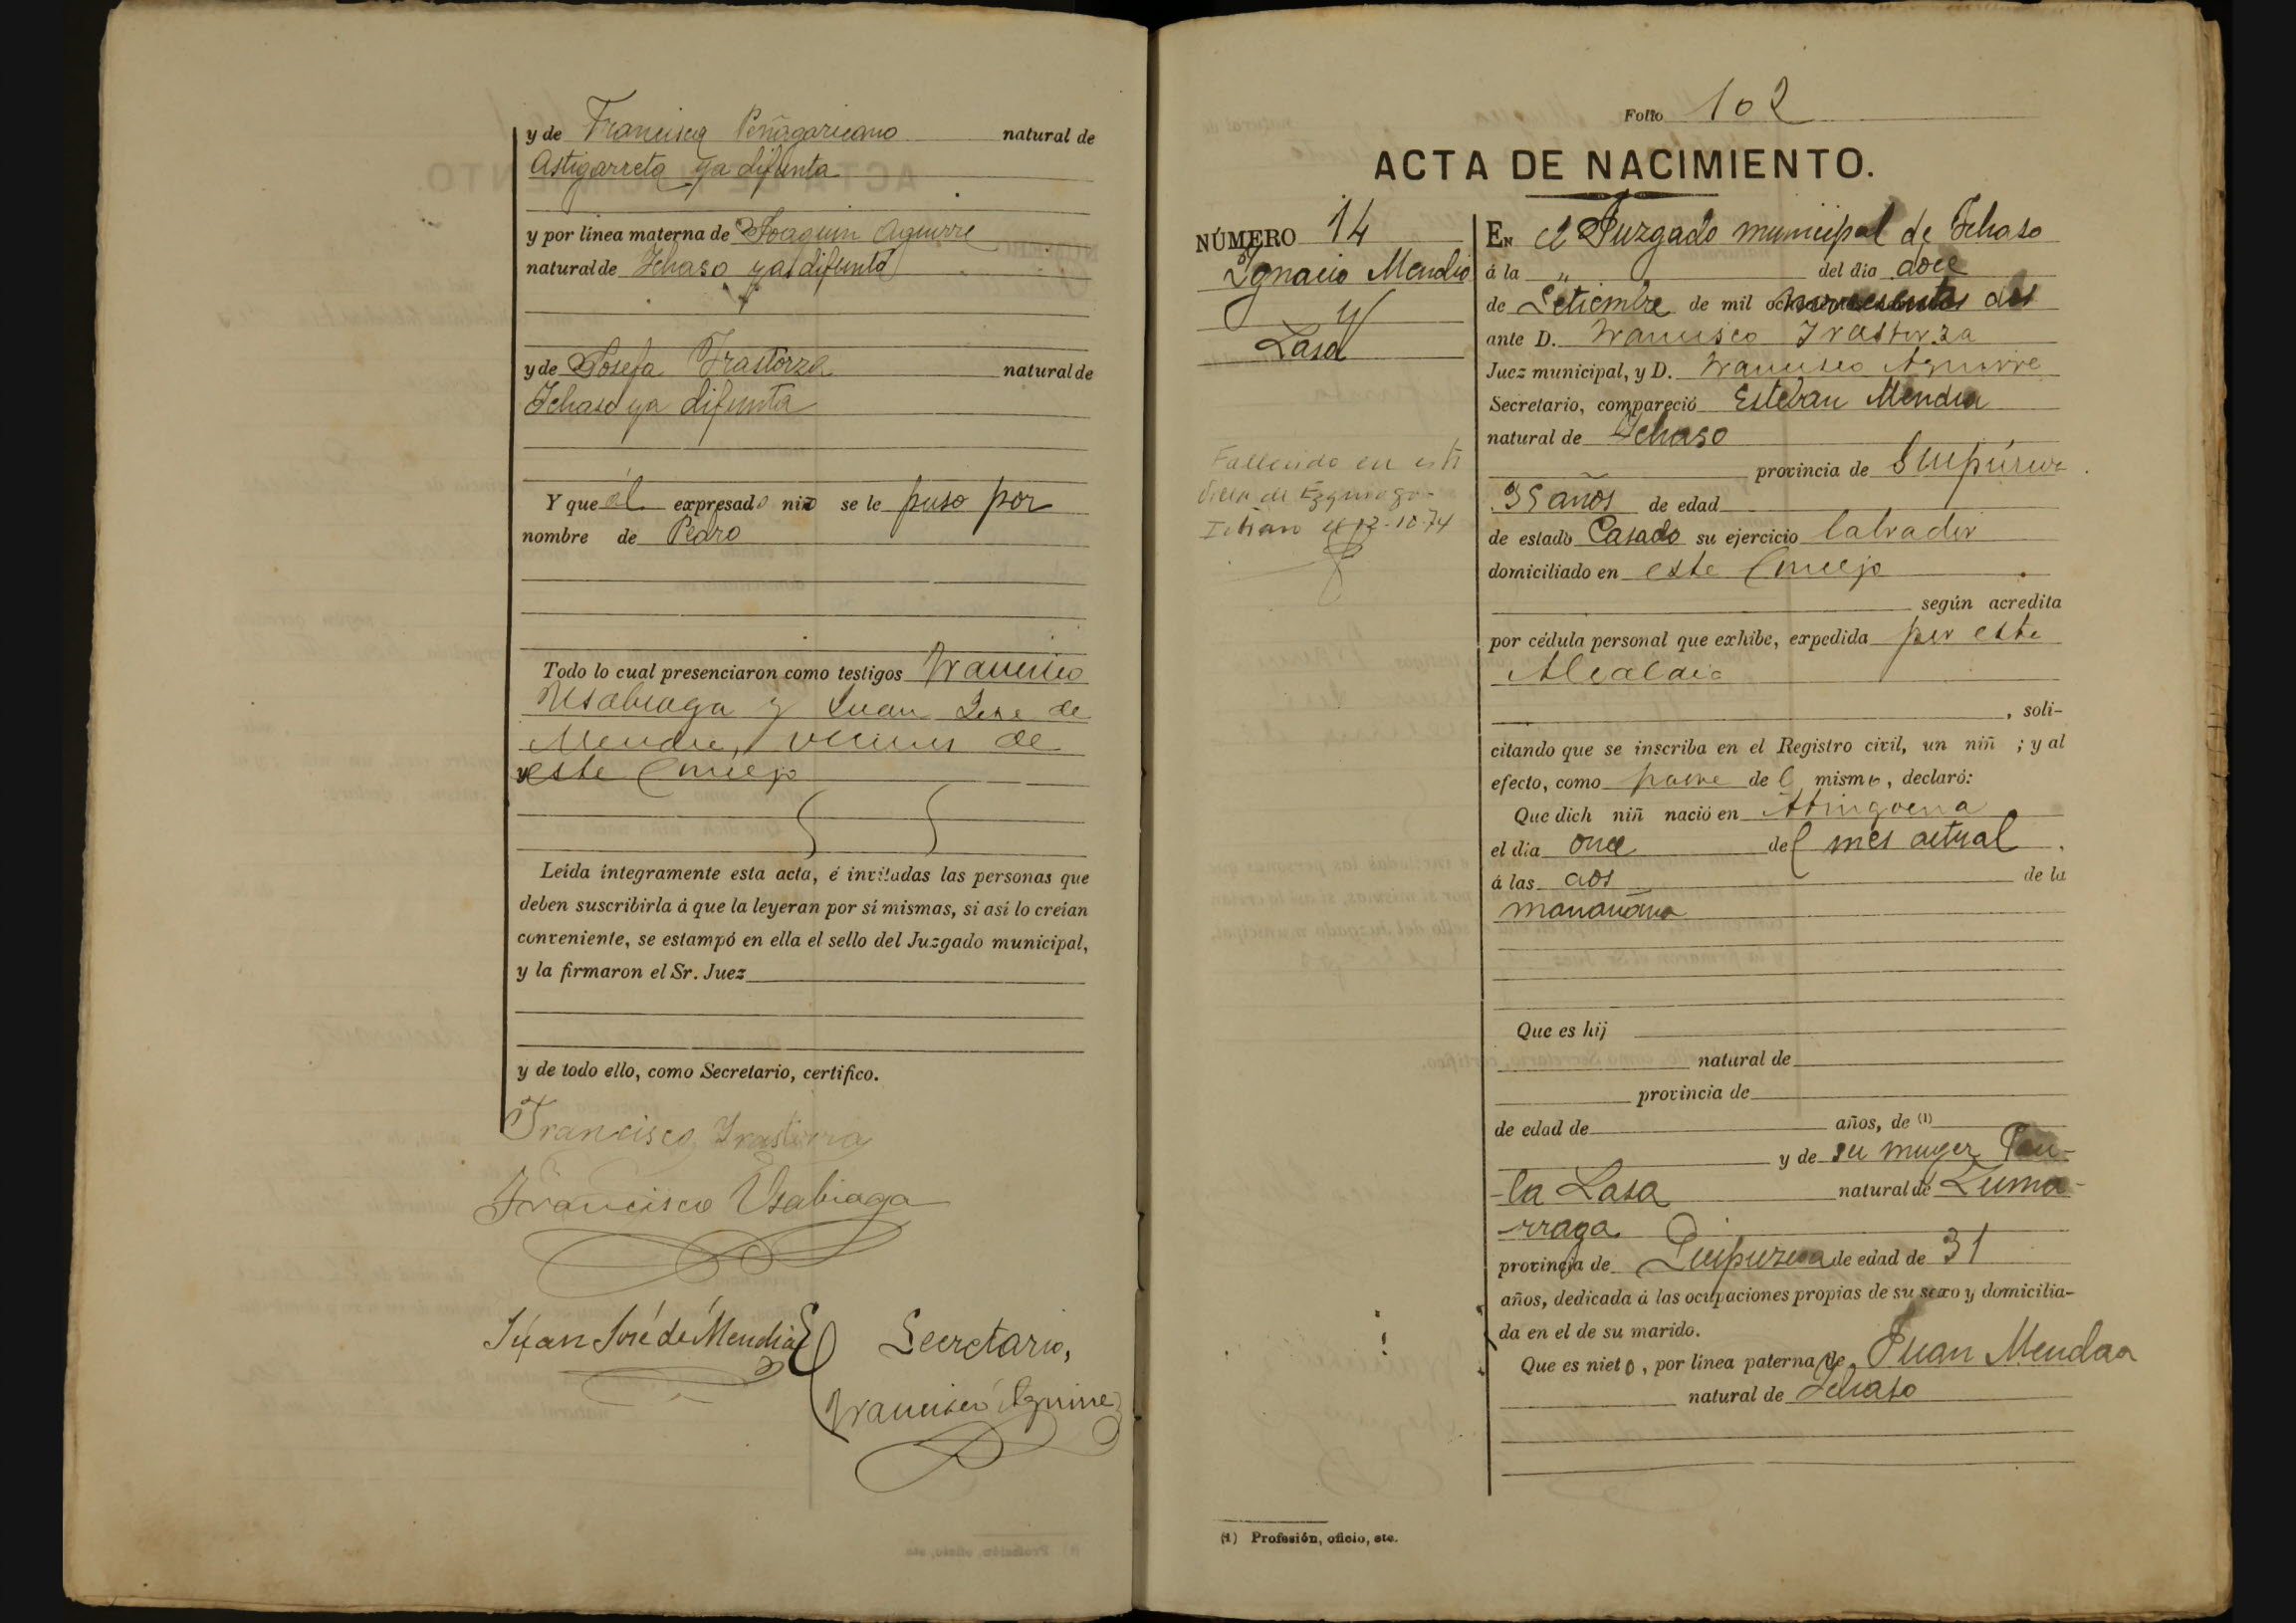 y de Francisca Peñagaricano natural de
Astigarreta ya difunta
y por línea materna de Joaquin Aguirre
natural de Ichaso ya difunto
y de Josefa Irastorza natural de
Ichaso ya difunta
Y que al expresado niño se le puso por
nombre de Pedro
Todo lo cual presenciaron como testigos Francisco
Usabiaga y Juan Jose de
Mendia, vecinos de
este Concejo
Leída íntegramente esta acta, é invitadas las personas que
deben suscribirla á que la leyeran por sí mismas, si así lo creían
conveniente, se estampó en ella el sello del Juzgado municipal,
y la firmaron el Sr. Juez
y de todo ello, como Secretario, certifico.
Francisco Irastorza
Francisco Usabiaga
Juan José de Mendia
El Secretario,
Francisco Aguirre
Folio 102
ACTA DE NACIMIENTO.
NÚMERO 14
Ygnacio Mendia
y
Lasa
Fallecido en esta
villa de Ezquioga-
Ichaso el 12-10-74
En el Juzgado municipal de Ichaso
á la " del día doce
de Setiembre de mil novecientos dos
ante D. Francisco Irastorza
Juez municipal, y D. Francisco Aguirre
Secretario, compareció Esteban Mendia
natural de Ichaso
provincia de Guipúzcoa
35 años de edad
de estado Casado su ejercicio labrador
domiciliado en este Concejo
según acredita
por cédula personal que exhibe, expedida por esta
Alcaldia
, soli-
citando que se inscriba en el Registro civil, un niñ ; y al
efecto, como padre del mismo, declaró:
Que dich niñ nació en
el día once del mes actual
á las dos de la
manañana
Que es hij
natural de
provincia de
de edad de años, de (1)
y de su muger Pau-
-la Lasa natural de Zuma-
-rraga
provincia de Guipuzcoa de edad de 31
años, dedicada á las ocupaciones propias de su sexo y domicilia-
da en el de su marido.
Que es nieto, por línea paterna de Juan Mendia
natural de Ichaso
(1) Profesión, oficio, etc.